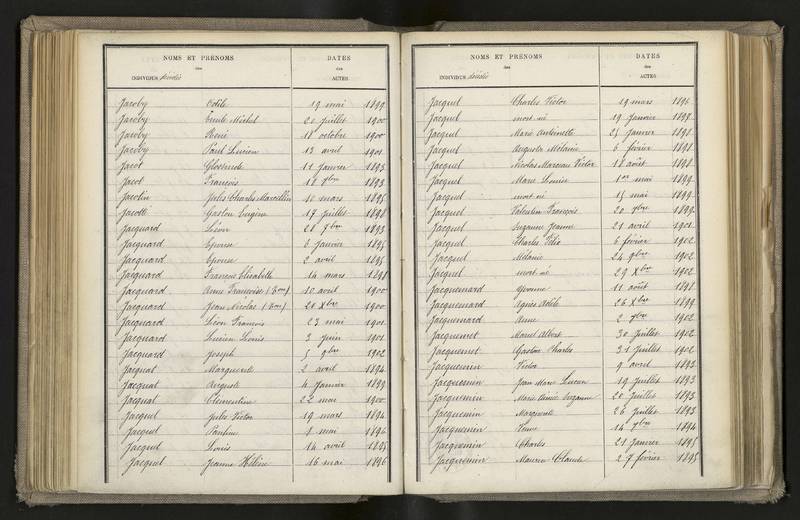 NOMS ET PRÉNOMS
des
INDIVIDUS décédés
DATES
des
ACTES
Jacoby Odile 19 mai 1899
Jacoby Émile Michel 21 juillet 1900
Jacoby René 18 octobre 1900
Jacoby Paul Lucien 13 avril 1901
Jacot 11 janvier 1893
Jacot François 1893
Jacotin Jules Charles Marcellin 10 mars 1895
Jacotte Gaston Eugène 17 juillet 1898
Jacquard Léon 1893
Jacquard Epouse 6 janvier 1895
Jacquard Epouse 2 avril 1895
Jacquard Elisabeth 14 mars 1898
Jacquard Anne Françoise 10 avril 1900
Jacquard Jean Nicolas 26 Xbre 1900
Jacquard Léon François 23 mai 1901
Jacquard Lucien Louis 3 juin 1901
Jacquard Joseph 5 9bre 1902
Jacquat Marguerite 2 avril 1894
Jacquat Auguste 4 janvier 1899
Jacquat Clémentine 22 mai 1900
Jacquel Jules Victor 19 mars 1894
Jacquel Pauline 1 mai 1894
Jacquel Louis 14 avril 1895
Jacquel Jeanne Hélène 16 mai 1896
NOMS ET PRÉNOMS
des
INDIVIDUS décédés
DATES
des
ACTES
Jacquel Charles Victor 19 mars 1896
Jacquel mort-né 19 janvier
Jacquel Marie Antoinette 25 janvier 1898
Jacquel Augusta Mélanie 6 février 1898
Jacquel Nicolas Victor 18 août 1898
Jacquel Marie Louise 1er mai 1899
Jacquel mort-né 15 mai 1899
Jacquel Valentin François 20 1899
Jacquel Suzanne Jeanne 21 avril 1901
Jacquel Charles 6 février 1902
Jacquel Mélanie 24 9bre 1902
Jacquel mort-né 29 Xbre 1902
Jacquemard Yvonne 11 août 1898
Jacquemard Agnès Adèle 26 Xbre 1899
Jacquemard Anne 2 1902
Jacquemet Marcel Albert 30 juillet 1902
Jacquemet Gaston Charles 31 juillet 1902
Jacquemin Victor 9 avril 1893
Jacquemin Jean Marie Lucien 19 juillet 1893
Jacquemin Marie Aimée Suzanne 20 juillet 1893
Jacquemin Marguerite 26 juillet 1893
Jacquemin Veuve 14 1894
Jacquemin Charles 21 janvier 1895
Jacquemin Maurice Claude 27 février 1895